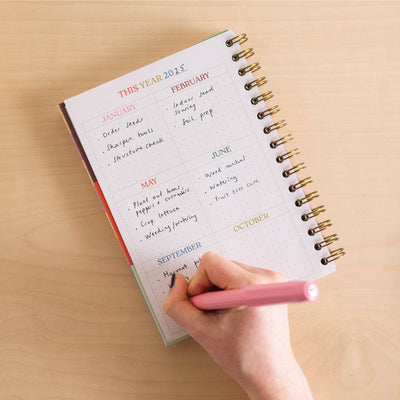 THIS YEAR 2025
JANUARY
Order seeds
• Sharpen tools
• Structure check
FEBRUARY
• Indoor seed
sowing
• Soil prep
MAY
• Plant out toms,
peppers +
• Crop lettuce
• Weeding/watering
JUNE
• Weed control
• Watering
• Fruit tree care
SEPTEMBER
• Harvest
OCTOBER